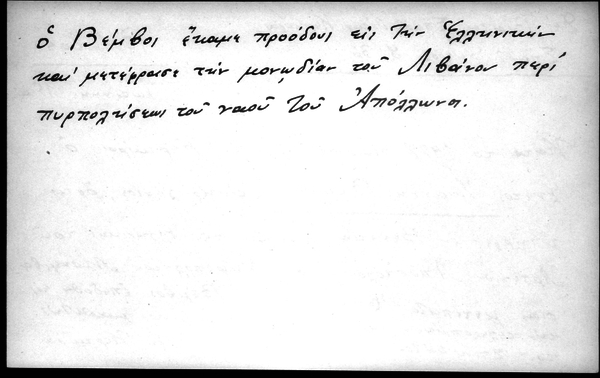 ὁ Βέμβος ἔκαμε προόδους εἰς τὴν Ἑλληνικὴν
καὶ μετέφρασε τὴν μονῳδίαν τοῦ Λιβάνου περὶ
πυρπολήσεως τοῦ ναοῦ τοῦ Ἀπόλλωνος.